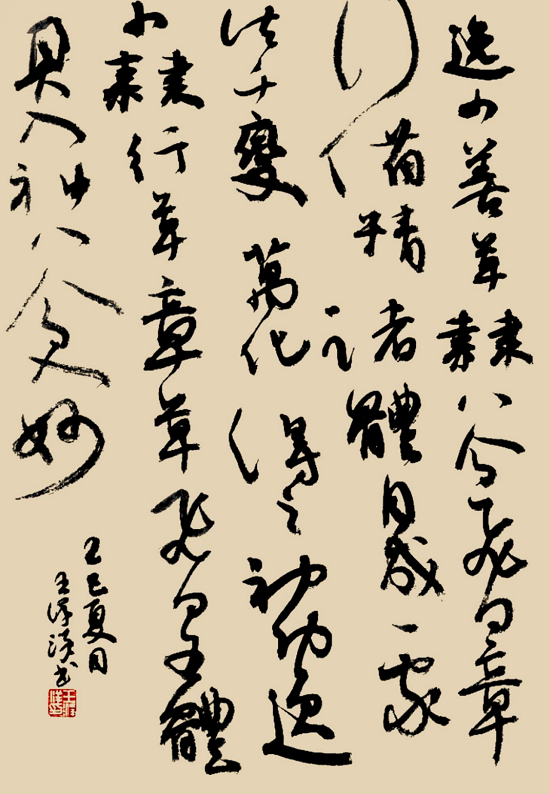 逸少善草隸八分飛白章
行備精諸體自成一家
法千變萬化得之神功逸
少隸行草章草飛白五體
具入神八分入妙
乙巳夏日
王泽书